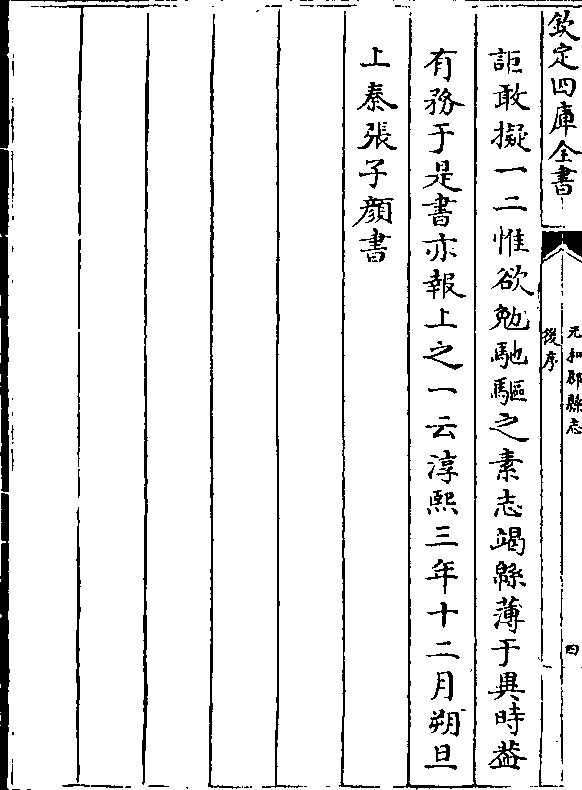 欽定四庫全書
元和郡縣志
後序
四
詎敢擬一二惟欲勉馳驅之素志竭緜薄于異時葢
有務于是書亦報上之一云淳熙三年十二月朔旦
上秦張子顔書